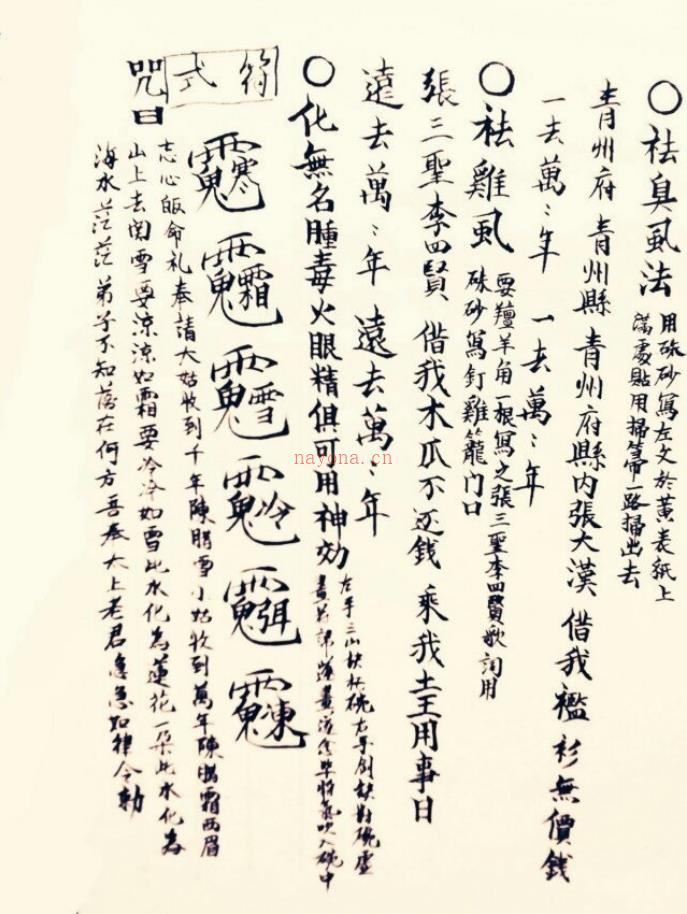 ○祛臭虱法 用硃砂寫左文於黃表紙上
滿處貼用掃箒一路掃出去
青州府 青州縣 青州府縣内張大漢 借我襤衫無價錢
一去萬〻年 一去萬〻年
○祛雞虱 要羶羊角一根寫之張三聖李四賢歌詞用
硃砂寫釘雞籠门口
張三聖李四賢 借我木瓜不还錢 乘我土王用事日
遠去萬〻年 遠去萬〻年
○化無名腫毒火眼精俱可用神効 左手三山訣杯碗右手劍訣對碗虛
畫符諱
將氣吹入碗中
符式
咒曰
志心皈命礼奉請大姑收到千年陳臘雪小姑收到萬年陳臘霜西眉
山上去
雪要涼涼如霜要冷冷如雪此水化為蓮花一朵此水化為
海水茫茫弟子不知落在何方吾奉太上老君急急如律令勅
nayona.cn